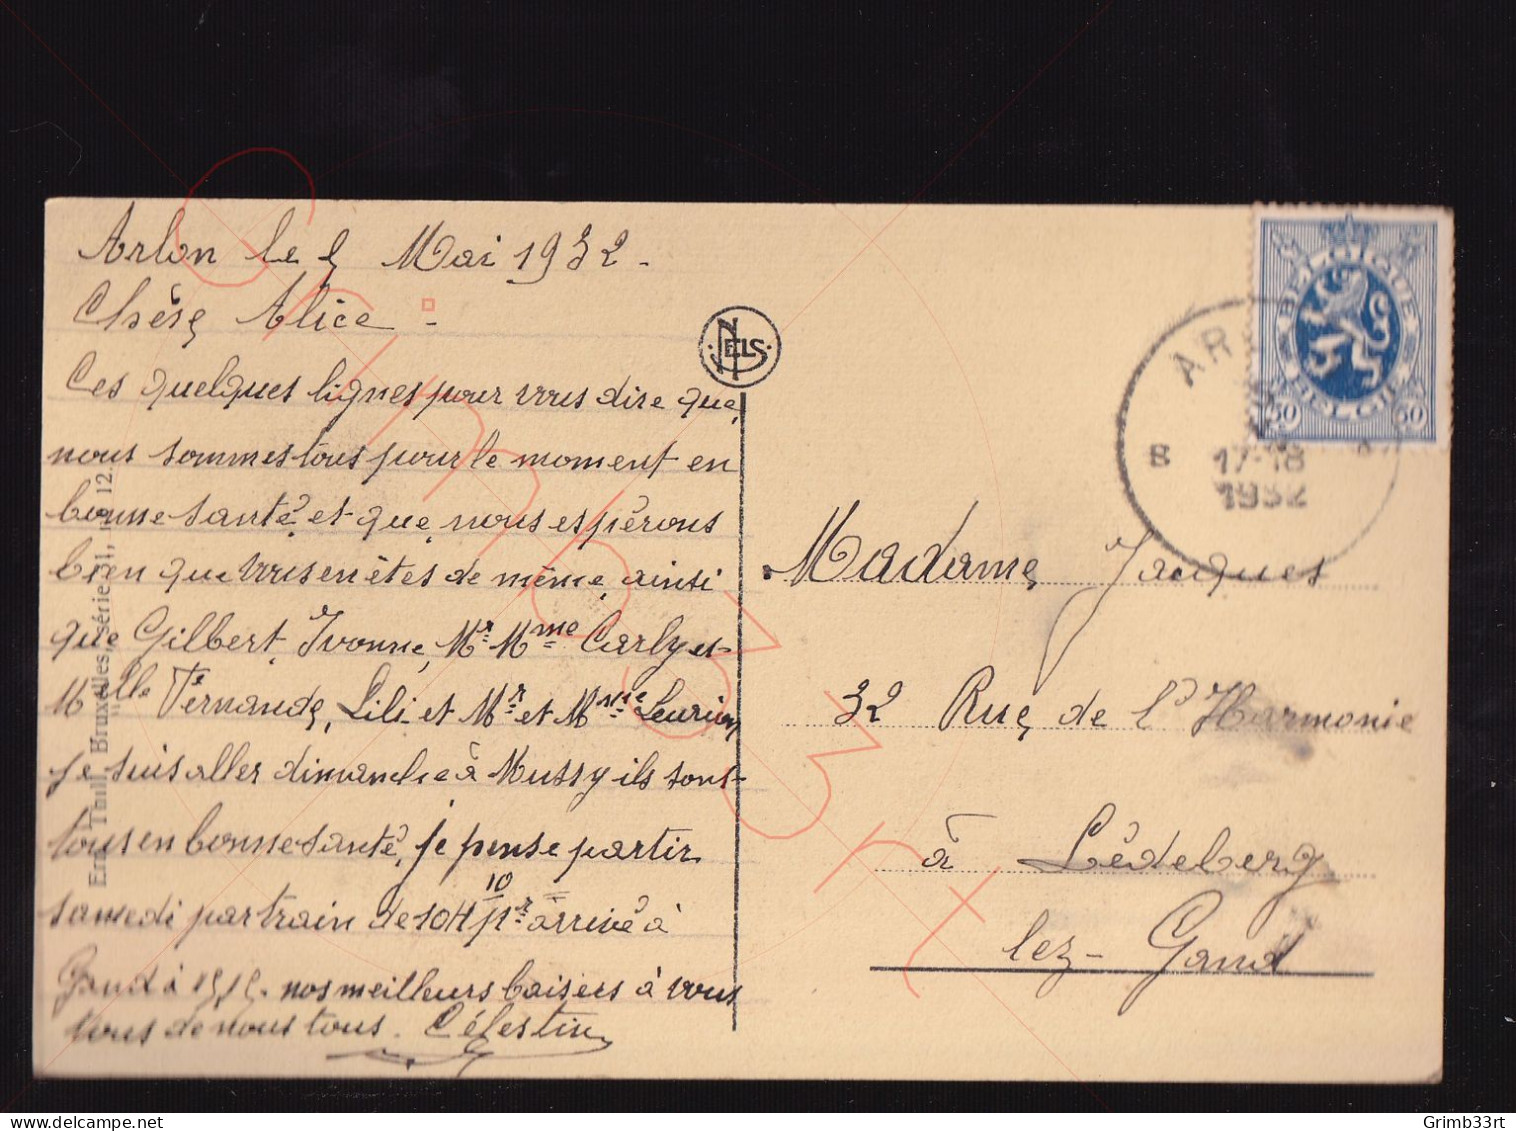 Arlon le 5 Mai 1932.
Chère Alice -
Ces quelques lignes pour vous dire que
nous sommes tous pour le moment en
bonne santé, et que, nous espérons
bien que vous en êtes de même, ainsi
que Gilbert, Yvonne, Mr Mme Carly et
Melle Fernande, Lili et Mr et Mme
je suis aller dimanche à Mussy ils sont
tous en bonne santé, je pense partir
samedi par train de 10H 10 arrivé à
Gand à 15,15. nos meilleurs baisers à vous
tous de nous tous. Célestin
NELS
Ern. Thill, Bruxelles, série 31, n° 12.
BELGIQUE
BELGIË
50 50
17-18
1932
Madame Jacques
32 Rue de l'Harmonie
à Lédeberg
lez-Gand
Grimb33rt
Grimb33rt